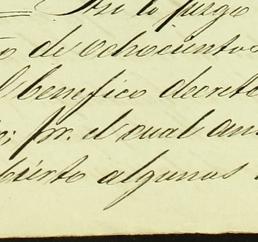 Asi lo juzgo
de ochocientos
benefico decreto
por el cual an
bierto algunas